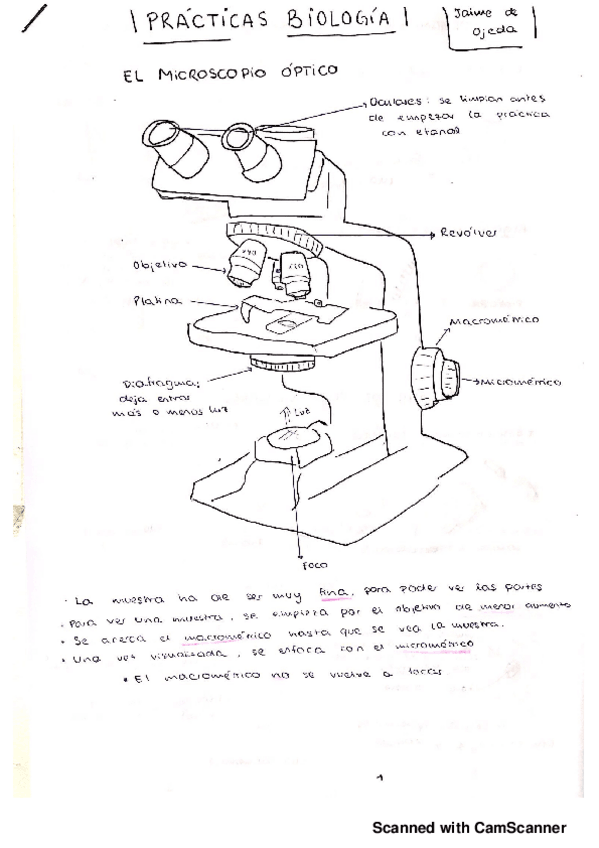 PRÁCTICAS BIOLOGÍA
Jaime de
Ojeda
EL MICROSCOPIO ÓPTICO
Oculares: se limpian antes
de empezar la práctica
con etanol
Revólver
Objetivo
Platina
Macrométrico
Micrométrico
Diafragma;
deja entrar
más o menos luz
Luz
Foco
· La muestra ha de ser muy fina, para poder ver las partes
· Para ver una muestra, se empieza por el objetivo de menor aumento
· Se acerca el macrométrico hasta que se vea la muestra.
· Una vez visualizada, se enfoca con el micrométrico
· El macrométrico no se vuelve a tocar
1
Scanned with CamScanner